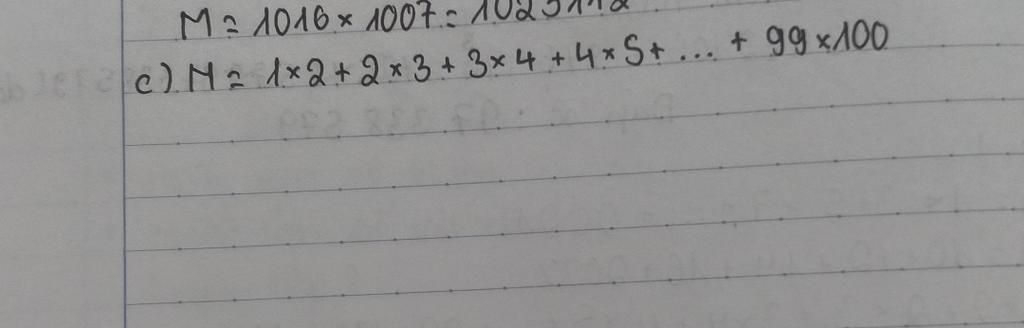 M = 1016 × 1007 =
c) M = 1×2 + 2×3 + 3×4 + 4×5 + ... + 99×100